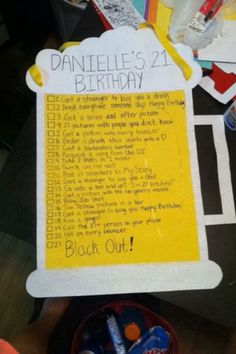 DANIELLE'S 21
BIRTHDAY
1 Get a stranger to buy you a drink
2 Drink everytime someone says Happy Birthday
3 Get a before and after picture
4 21 pictures with people you don't know
5 Get a picture with every bouncer
6 Order a drink that starts with a D
7 Get a bartenders number
8 Request a song from the DJ
9 Take 2 shots in 1 minute
10 Twerk on the wall
11 Post 21 snapchats to My Story
12 Get a stranger to buy you a shot
13 Go into a bar and yell "I'm 21 bitches!"
14 Get a picture with the bartender
15 Blow Job Shot
16 Tim Tebow Picture in a bar
17 Get a stranger to sing you Happy Birthday
18 Get a
19 Call the 21st person in your phone
20 Hit on every bouncer
21 Black Out!